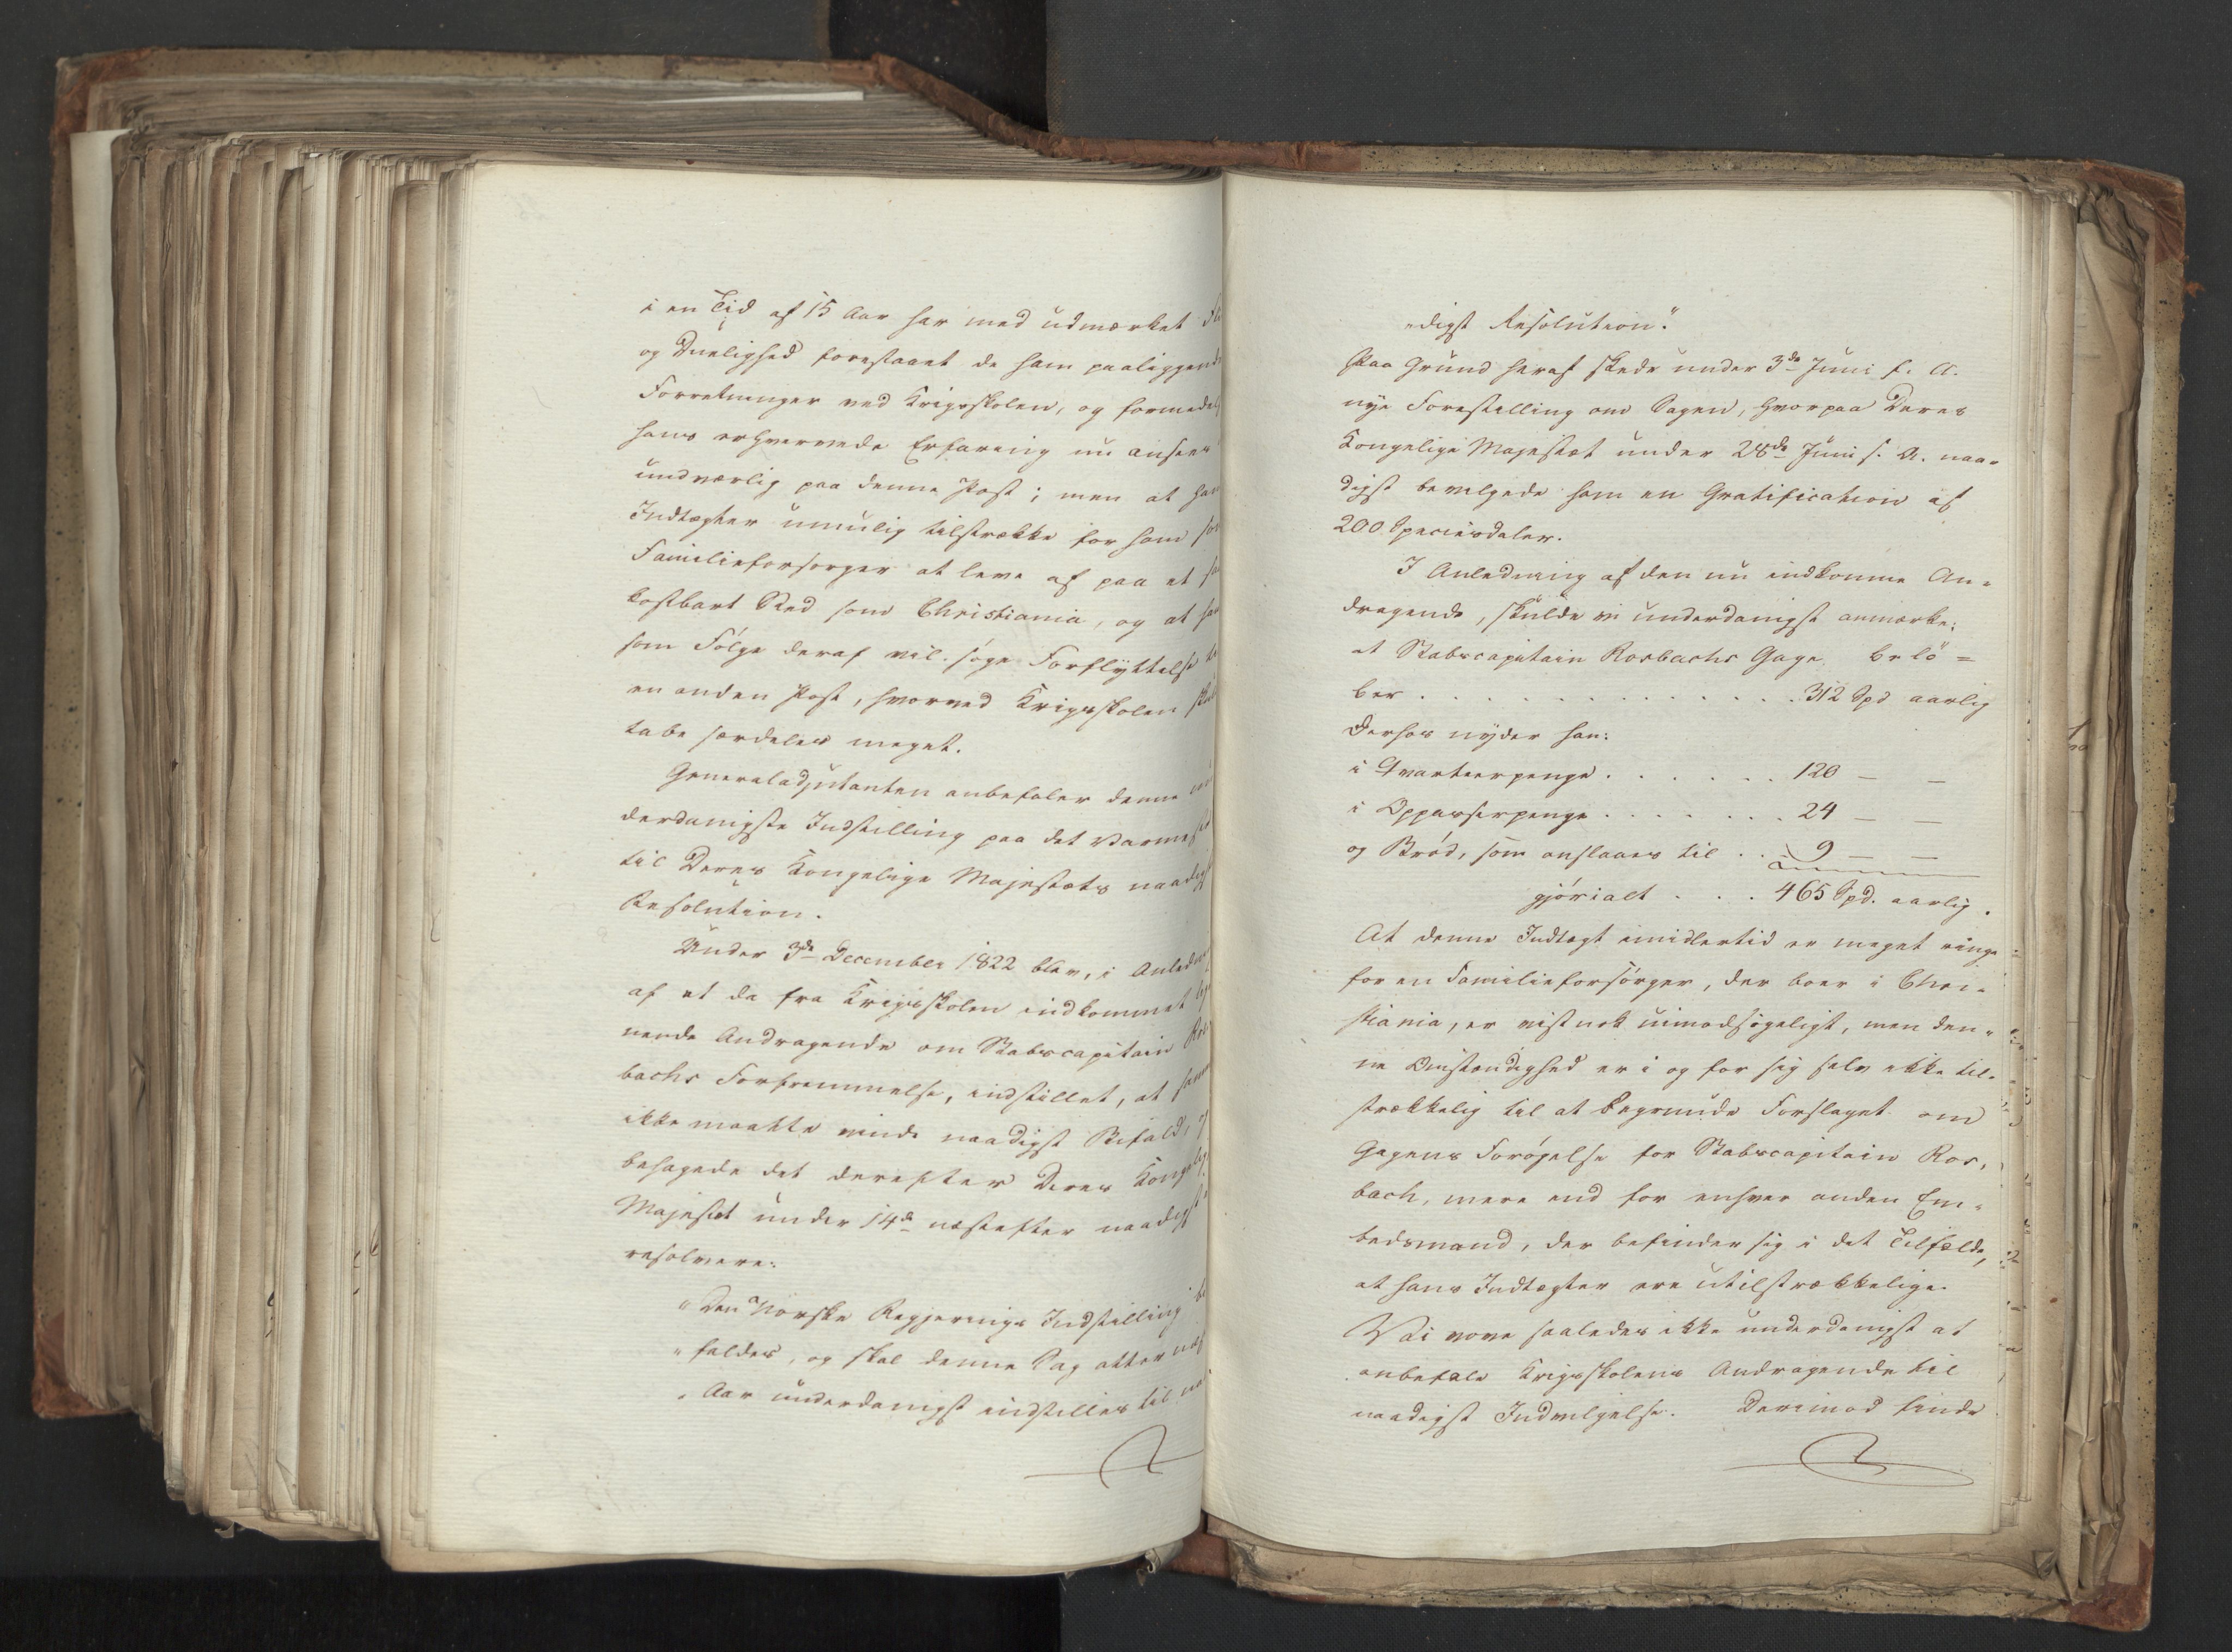 i en Tid af 15 Aar har med udmærket Fli
og Duelighed forestaaet de ham paaliggende
Forretninger ved Krigsskolen, og formedelst
hans erhvervede Erfaring nu ansees
undværlig paa denne Post; men at hans
Indtægter umulig tilstrække for ham som
Familieforsørger at leve af paa et saa
kostbart Sted som Christiania, og at han
som Følge deraf vil søge Forflyttelse til
en anden Post, hvorved Krigsskolen skul
tabe særdeles meget.
Generaladjutanten anbefaler denne un
derdanigste Indstilling paa det Varmeste
til Deres Kongelige Majestæts naadigst
Resolution.
Under 3de December 1822 blev, i Anledn
af et da fra Krigsskolen indkommet lig
nende Andragende om Stabscapitain Ros
bachs Forfremmelse, indstillet, at samme
ikke maatte vinde naadigst Bifald, og
behagede det derefter Deres Kongelig
Majestæt under 14de næstefter naadigst
resolvere:
"Den Norske Regjerings Indstilling bi
"faldes, og skal denne Sag atter næst
"Aar underdanigst indstilles til naa
"digst Resolution."
Paa Grund heraf skede under 3de Juni f. A.
nye Forestilling om Sagen, hvorpaa Deres
Kongelige Majestæt under 28de Juni s. A. naa-
digst bevilgede ham en Gratification af
200 Speciesdaler.
I Anledning af den nu indkomne An-
dragende, skulde vi underdanigst anmærke:
at Stabscapitain Rosbachs Gage belö=
ber . . . 312 Spd aarlig
Derhos nyder han:
i Qvarteerpenge . . . 120 — —
i Oppasserpenge . . . 24 — —
og Brød, som anslaaes til . . 9 — —
gjør ialt . . . 465 Spd. aarlig.
At denne Indtægt imidlertid er meget ringe
for en Familieforsørger, der boer i Chri-
stiania, er vistnok uimodsigeligt, men den-
ne Omstændighed er i og for sig selv ikke til-
strækkelig til at begrunde Forslaget om
Gagens Forøgelse for Stabscapitain Ros-
bach, mere end for enhver anden Em-
bedsmand, der befinder sig i det Tilfælde,
at hans Indtægter ere utilstrækkelige.
Vi vove saaledes ikke underdanigst at
anbefale Krigsskolens Andragende til
naadigst Indvilgelse. Derimod finde